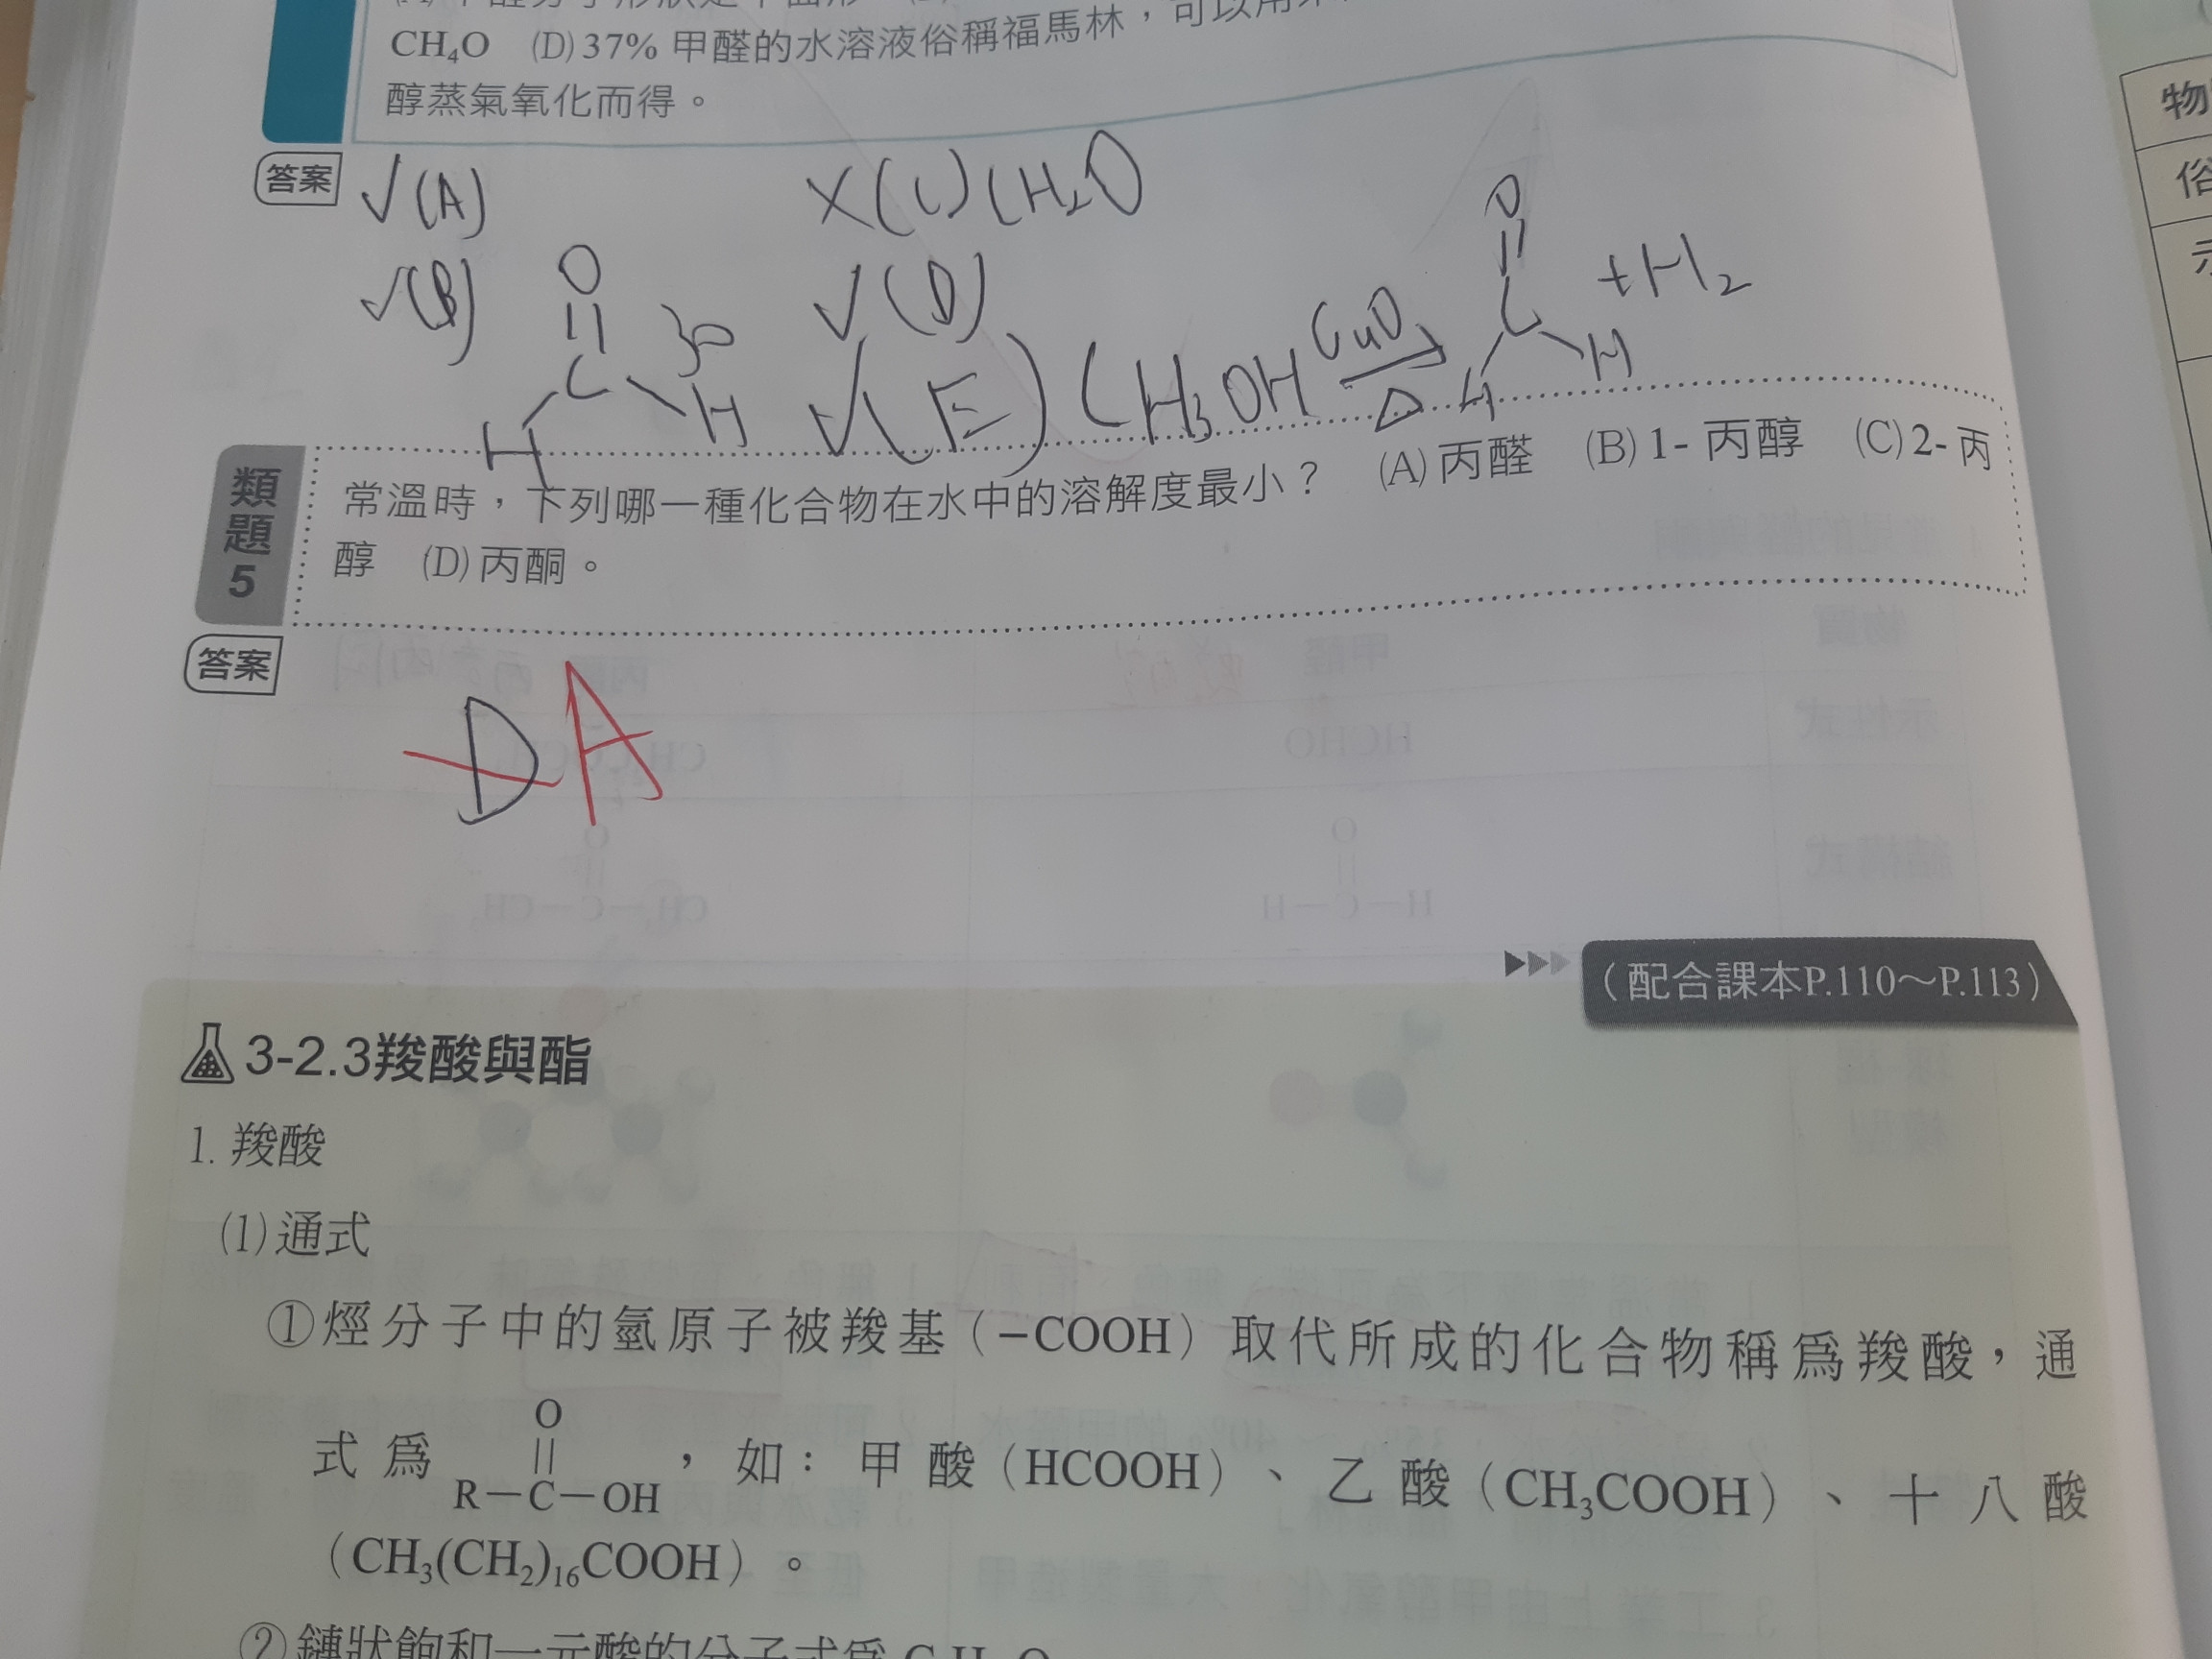 CH₄O (D) 37% 甲醛的水溶液俗稱福馬林，可以用
醇蒸氣氧化而得。
答案 √(A) X(C) CH₂O
√(B) O √(D)
C
H H
√(E) CH₃OH CuO Δ O C H H +H₂
類題5
常溫時，下列哪一種化合物在水中的溶解度最小？ (A) 丙醛 (B) 1-丙醇 (C) 2-丙
醇 (D) 丙酮。
答案
D A
（配合課本P.110～P.113）
3-2.3羧酸與酯
1. 羧酸
(1) 通式
①烴分子中的氫原子被羧基（–COOH）取代所成的化合物稱爲羧酸，通
O
||
式爲 R–C–OH ，如：甲酸（HCOOH）、乙酸（CH₃COOH）、十八酸
（CH₃(CH₂)₁₆COOH）。
②鏈狀飽和一元酸的分子式爲
物
俗